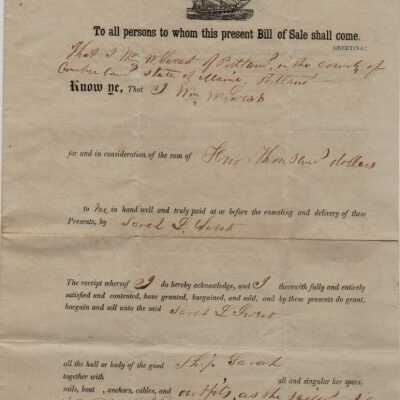 To all persons to whom this present Bill of Sale shall come.
GREETING:
That I Wm W of Portland, in the county of
Cumberland State of Maine, Portland
Know ye, That I Wm W
for and in consideration of the sum of Four Thousand dollars
to me in hand well and truly paid at or before the ensealing and delivery of these
Presents, by Sarah D.
The receipt whereof I do hereby acknowledge, and I therewith fully and entirely
satisfied and contented, have granted, bargained, and sold, and by these presents do grant,
bargain and sell unto the said Sarah D
all the hull or body of the good Ship Sarah
together with all and singular her spars,
sails, boat , anchors, cables, and outfits, as she